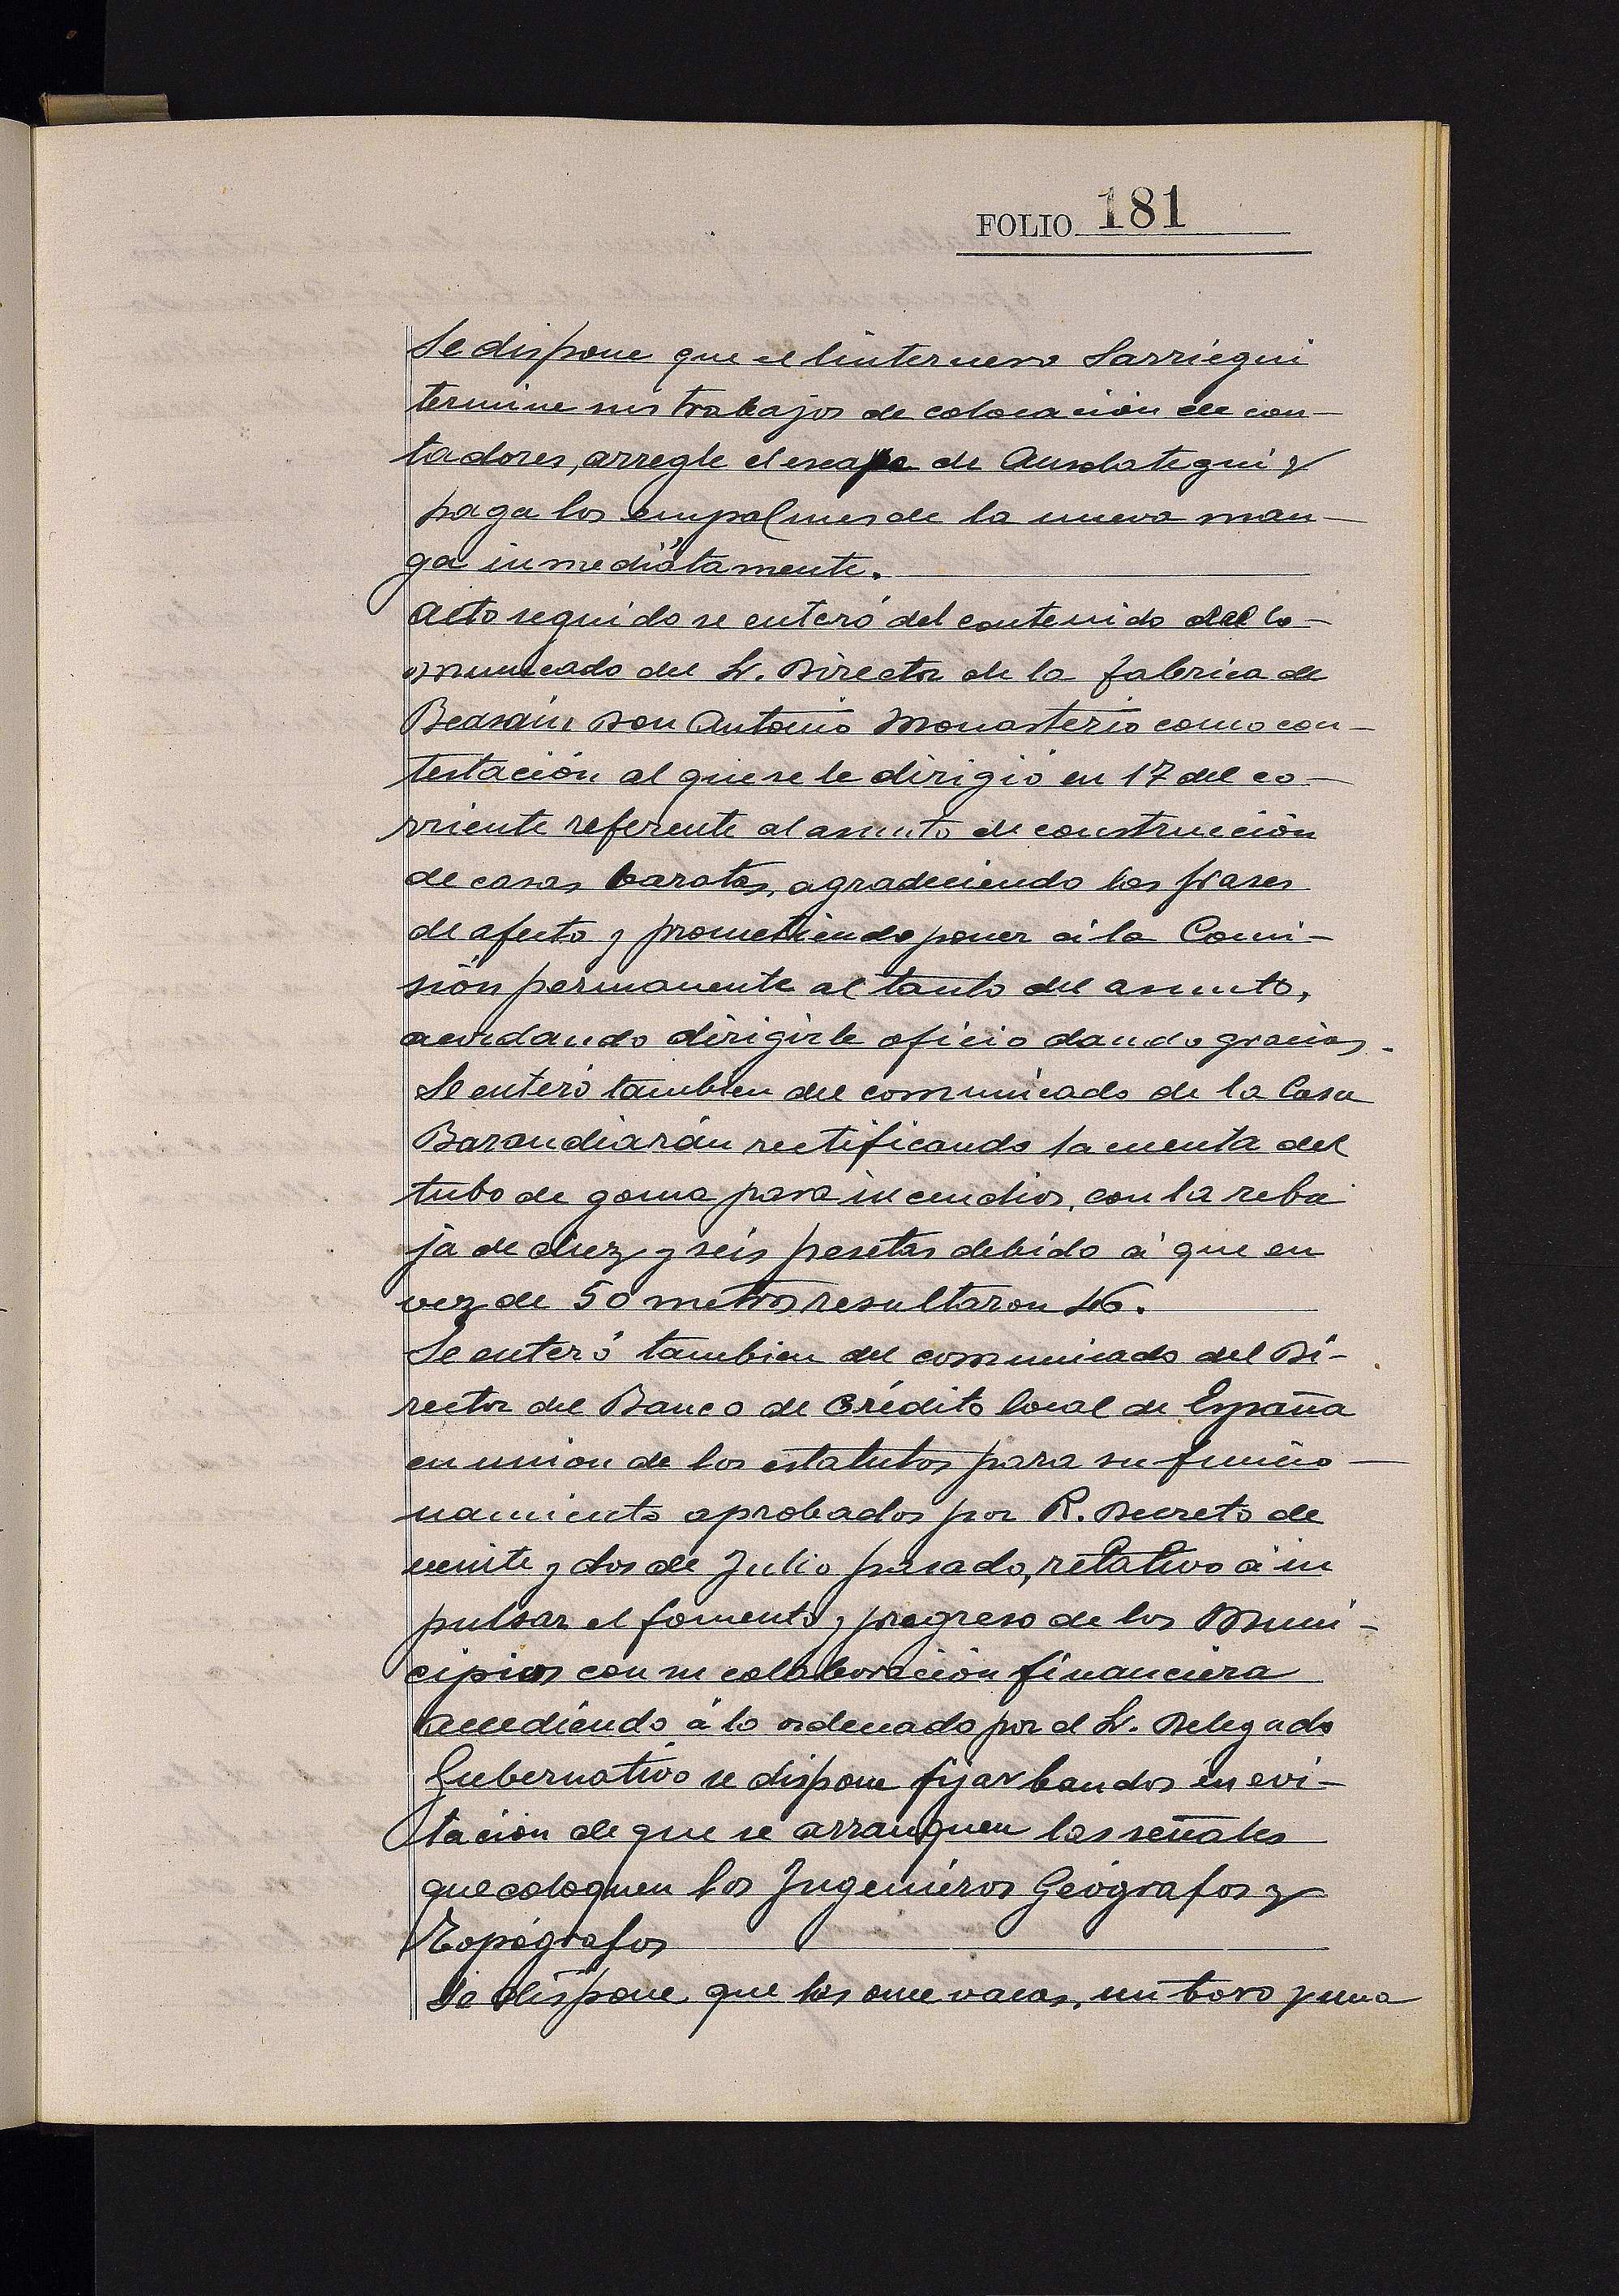 FOLIO 181
Se dispone que el linternero Sarriegui
termine sus trabajos de colocación de con-
tadores, arregle el escape de Ausolategui y
haga los empalmes de la nueva man-
ga inmediatamente.
Acto seguido se enteró del contenido del co-
municado del Sr. Director de la fabrica de
Beasain Don Antonio Monasterio como con-
testación al que se le dirigió en 17 del co-
rriente referente al asunto de construcción
de casas baratas, agradeciendo las frases
de afecto y prometiendo poner á la Comi-
sión permanente al tanto del asunto,
acordando dirigirle oficio dando gracias.
Se enteró tambien del comunicado de la Casa
Barandiarán rectificando la cuenta del
tubo de goma para incendios, con la reba
ja de diez y seis pesetas debido á que en
vez de 50 metros resultaron 46.
Se enteró tambien del comunicado del Di-
rector del Banco de Crédito local de España
en union de los estatutos para su funcio-
namiento aprobados por R. Decreto de
veinte y dos de Julio pasado, relativo á in
pulsar el fomento y progreso de los Muni-
cipios con su colaboración financiera
Accediendo á lo ordenado por el Sr. Delegado
Gubernativo se dispone fijar bandos en evi-
tación de que se arranquen las señales
que coloquen los Ingenieros Geógrafos y
Topógrafos
Se dispone que las once vacas, un toro y una